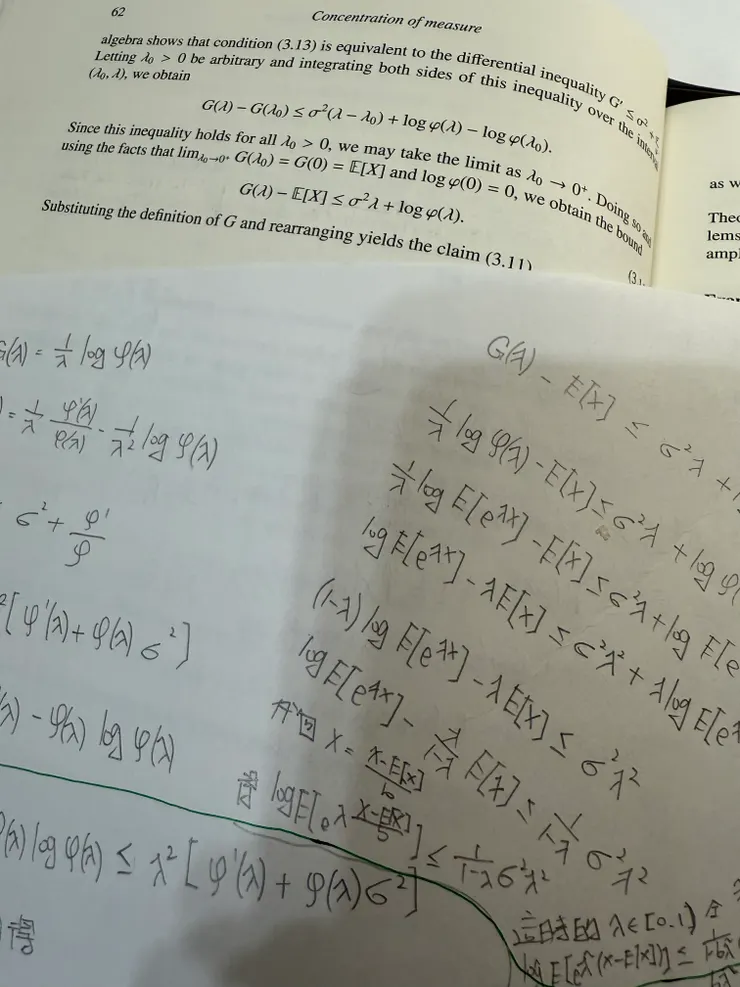 62
Concentration of measure
algebra shows that condition (3.13) is equivalent to the differential inequality G′ ≤ σ² +
Letting λ₀ > 0 be arbitrary and integrating both sides of this inequality over the
(λ₀, λ), we obtain
G(λ) − G(λ₀) ≤ σ²(λ − λ₀) + log φ(λ) − log φ(λ₀).
Since this inequality holds for all λ₀ > 0, we may take the limit as λ₀ → 0⁺. Doing so and
using the facts that lim_{λ₀→0⁺} G(λ₀) = G(0) = 𝔼[X] and log φ(0) = 0, we obtain the bound
G(λ) − 𝔼[X] ≤ σ²λ + log φ(λ).
Substituting the definition of G and rearranging yields the claim (3.11)
as w
Theo
lems
ampl
G(λ) = 1/λ log φ(λ)
= 1/λ φ'(λ)/φ(λ) - 1/λ² log φ(λ)
σ² + φ'/φ
[φ'(λ) + φ(λ) σ²]
(λ) - φ(λ) log φ(λ)
(λ) log φ(λ) ≤ λ² [φ'(λ) + φ(λ)σ²]
得
G(λ) - E[X] ≤ σ²λ +
1/λ log φ(λ) - E[X] ≤ σ²λ + log φ(
1/λ log E[e^{λX}] - E[X] ≤ σ²λ + log E[e
log E[e^{λX}] - λE[X] ≤ σ²λ² + λ log E[e
(1-λ) log E[e^{λX}] - λE[X] ≤ σ²λ²
log E[e^{λX}] - λ/(1-λ) E[X] ≤ 1/(1-λ) σ²λ²
X = (X-E[X])/b
log E[e^{λ (X-E[X])/b}] ≤ 1/(1-λ) σ²λ²
λ∈[0,1) 令
log E[e^{λ(X-E[X])}] ≤